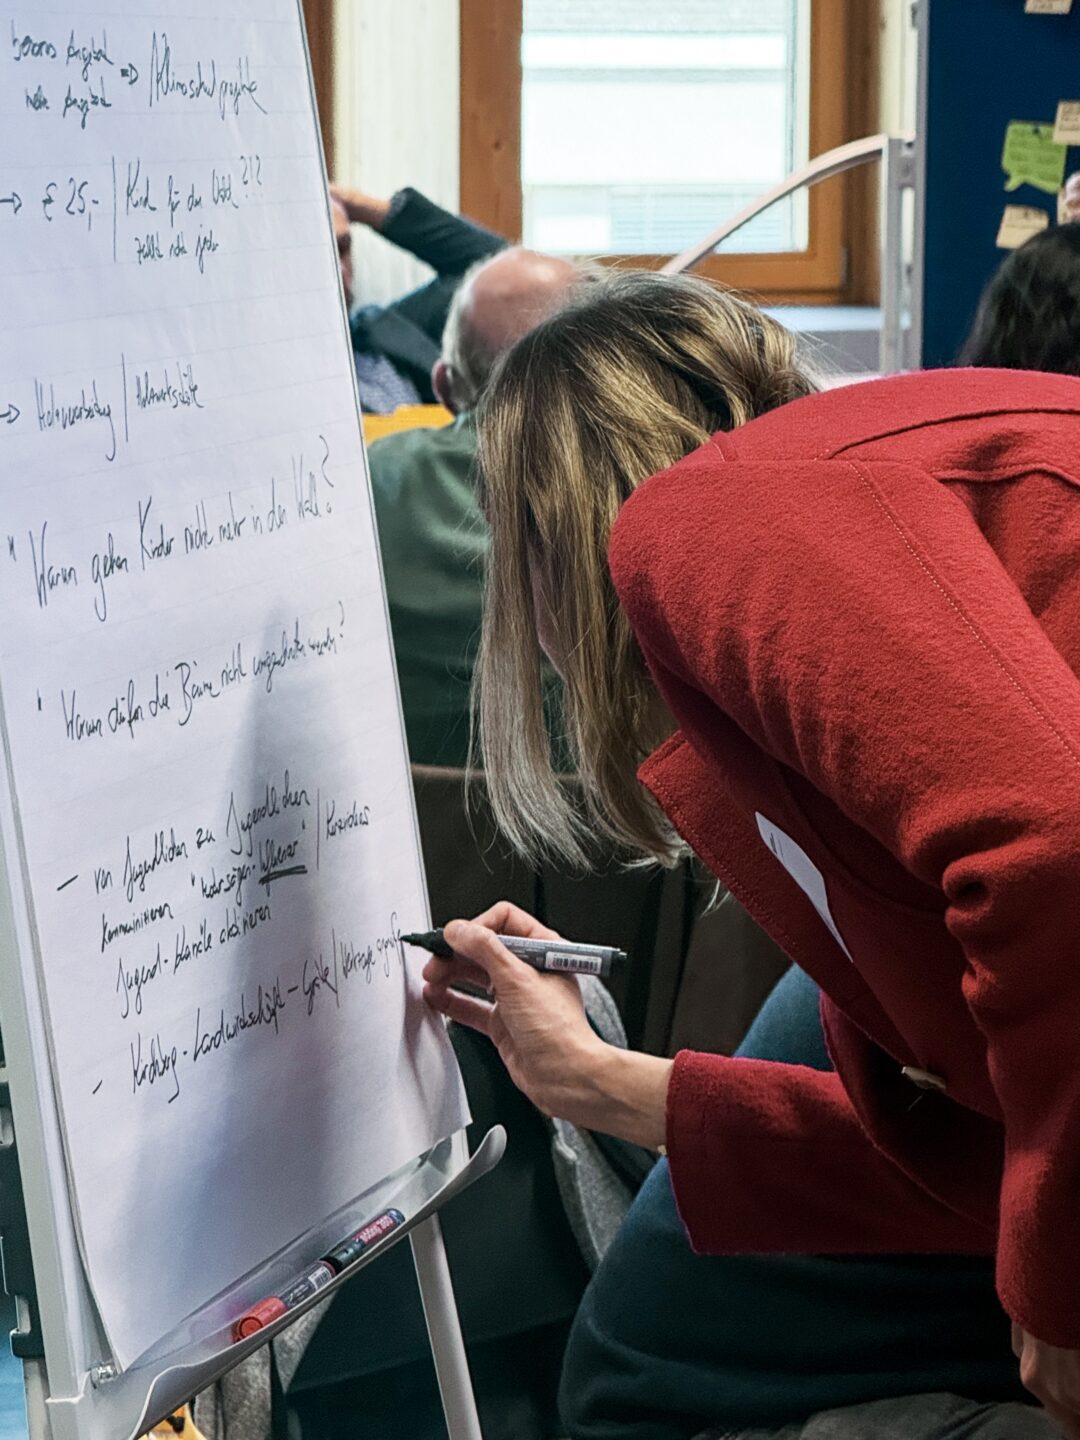 Angebot
mehr Angebot
⇒ Klimaschulprojekte
→ € 25,- | Kind für den Wald ?!?
zahlt nicht jeder
→ Holzverarbeitung / Holzwerkstätte
" Warum gehen Kinder nicht mehr in den Wald?
" Warum dürfen die Bäume nicht umgeschnitten werden?
– von Jugendlichen zu Jugendlichen
kommunizieren "Motorsägen-Influencer" / Kurzvideos
Jugend-Kanäle aktivieren
– Kirchberg - Landwirtschaft -